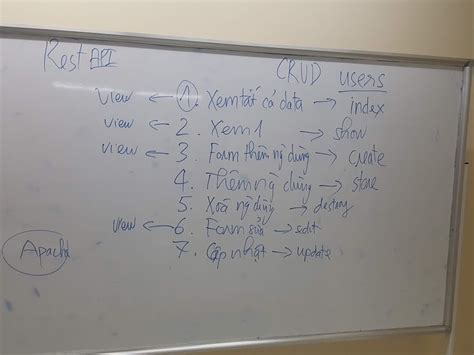 Rest API
CRUD users
view ← 1. Xem tất cả data → index
view ← 2. Xem 1 → show
view ← 3. Form thêm ng dùng → create
4. Thêm ng dùng → store
5. Xoá ng dùng → destroy
view ← 6. Form sửa → edit
7. Cập nhật → update
Apache